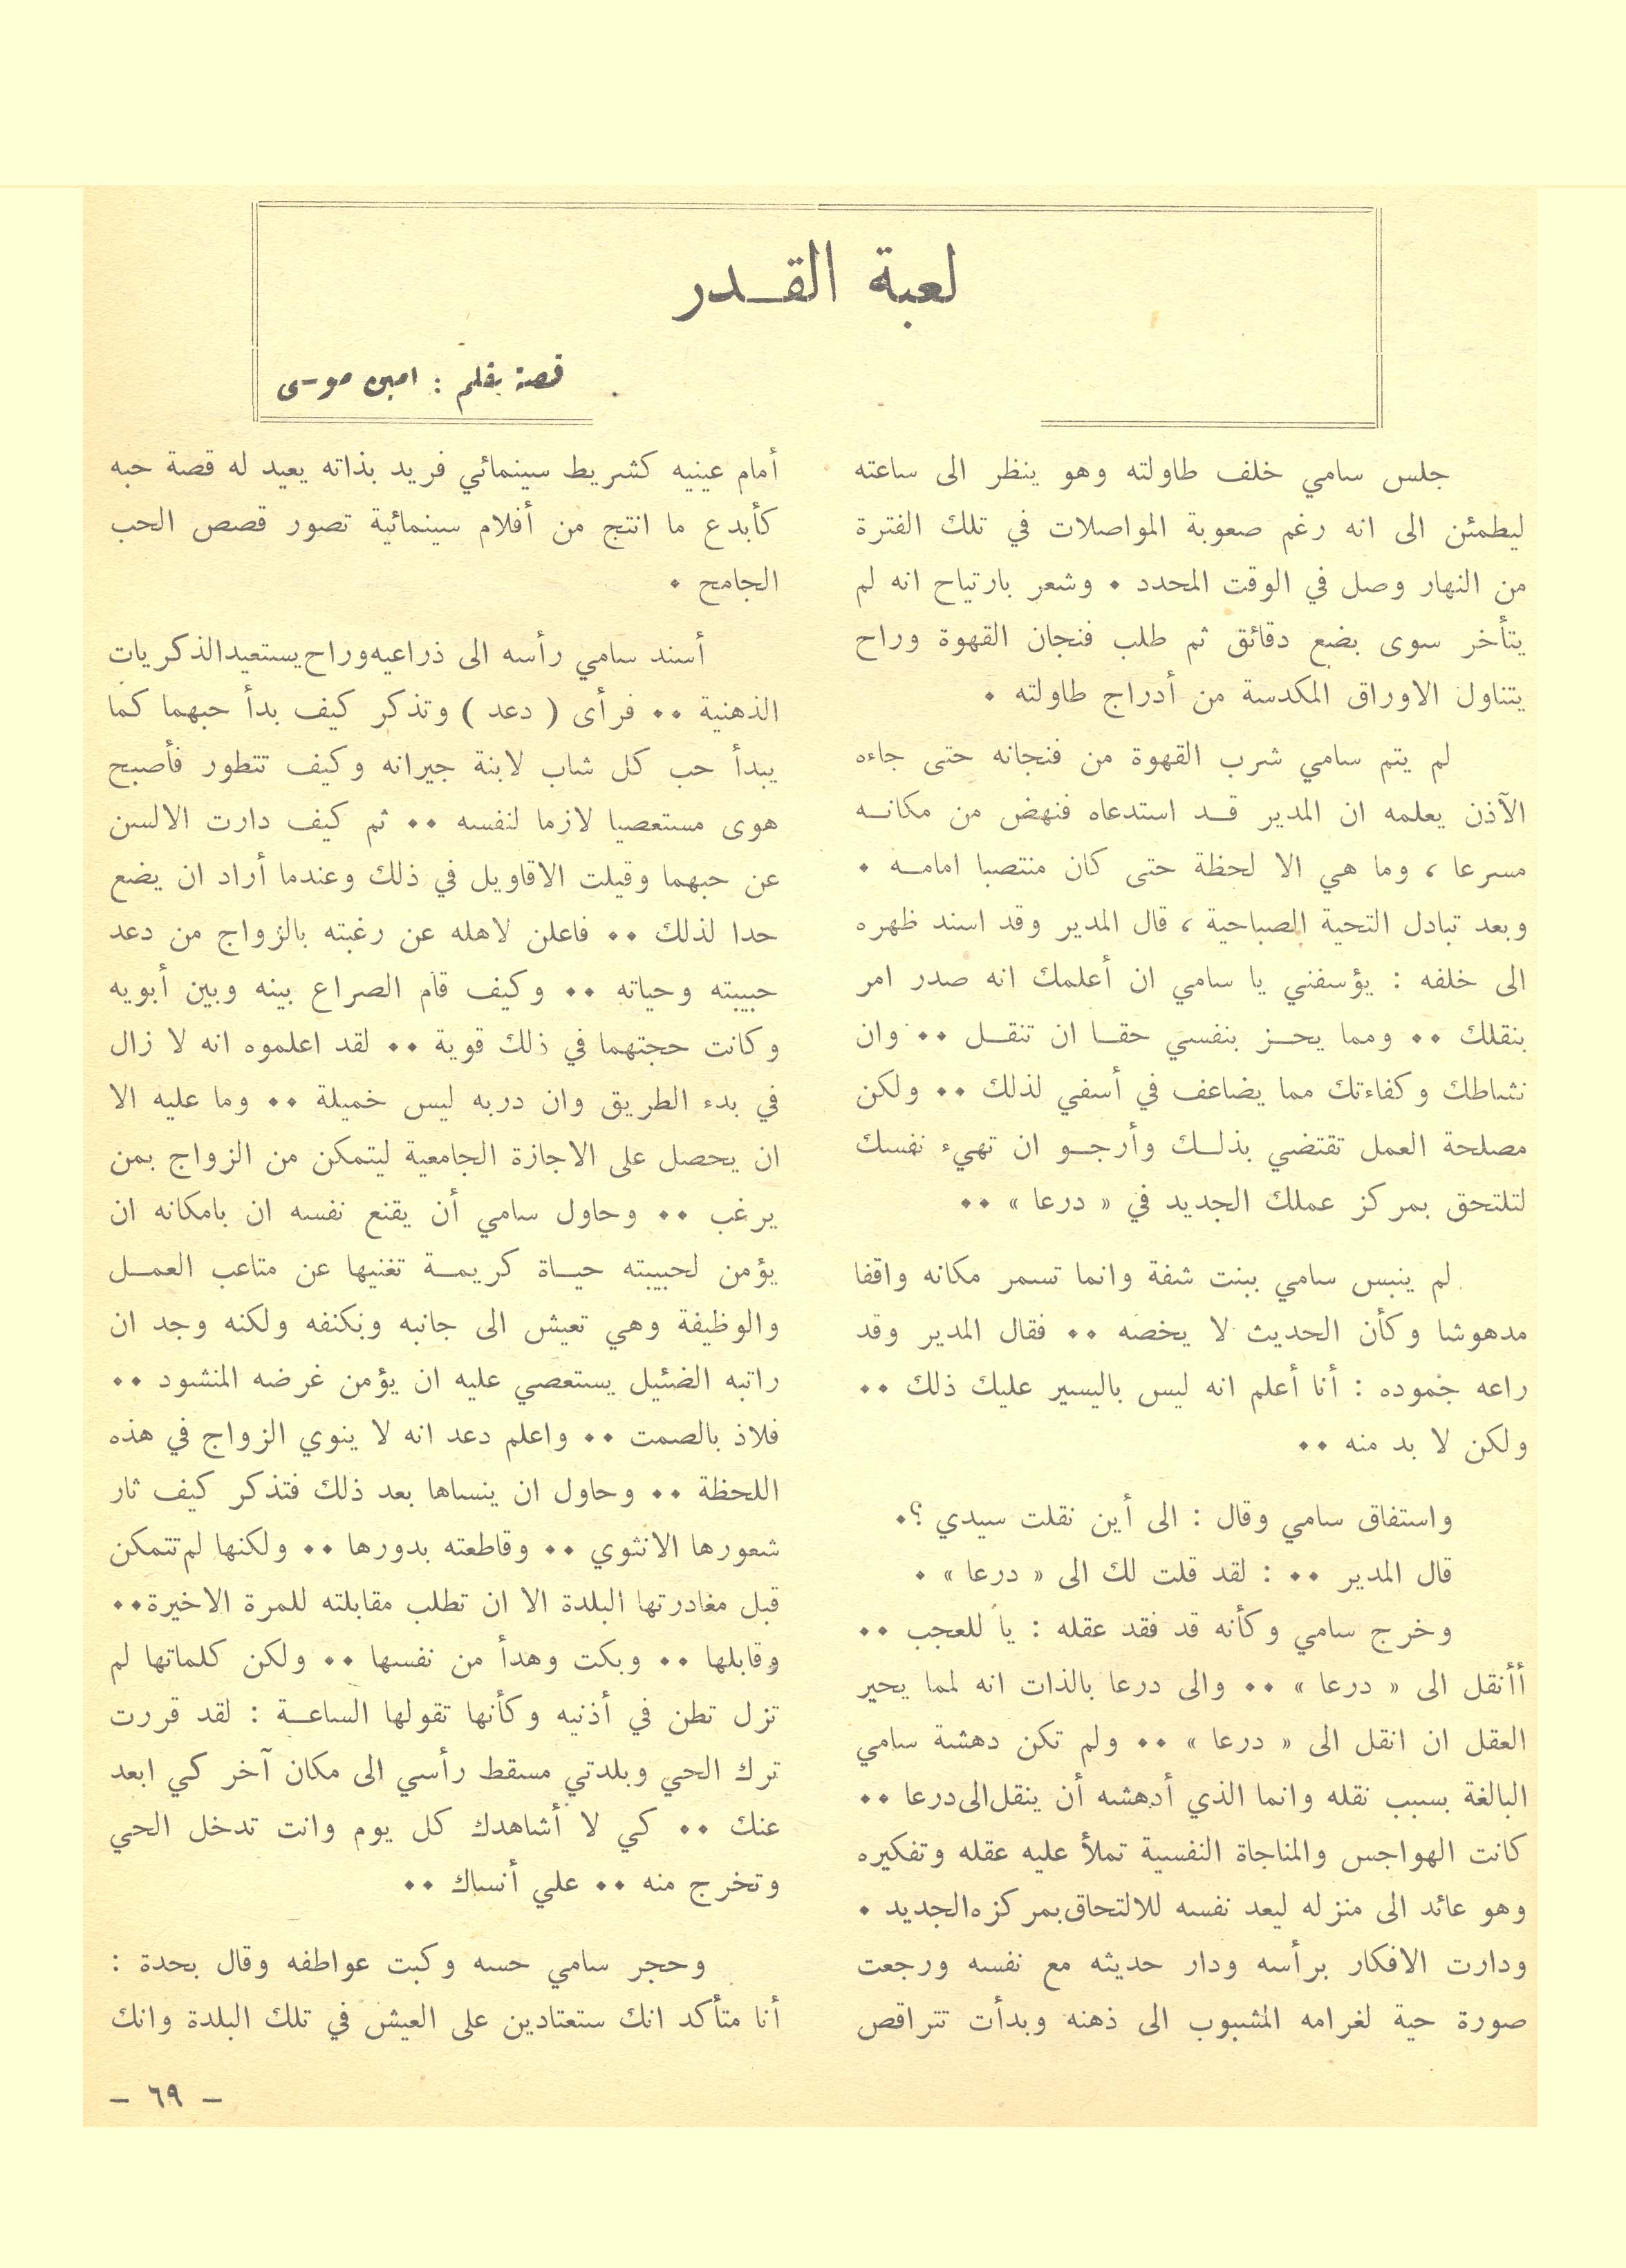 لعبة القـدر
قصة بقلم : امين موسى
جلس سامي خلف طاولته وهو ينظر الى ساعته
ليطمئن الى انه رغم صعوبة المواصلات في تلك الفترة
من النهار وصل في الوقت المحدد ٠ وشعر بارتياح انه لم
يتأخر سوى بضع دقائق ثم طلب فنجان القهوة وراح
يتناول الاوراق المكدسة من أدراج طاولته ٠
لم يتم سامي شرب القهوة من فنجانه حتى جاءه
الآذن يعلمه ان المدير قـد استدعاه فنهض من مكانـه
مسرعا ، وما هي الا لحظة حتى كان منتصبا امامـه ٠
وبعد تبادل التحية الصباحية ، قال المدير وقد اسند ظهره
الى خلفه : يؤسفني يا سامي ان أعلمك انه صدر امر
بنقلك ٠٠ ومما يحـز بنفسي حقـا ان تنقـل ٠٠ وان
نشاطك وكفاءتك مما يضاعف في أسفي لذلك ٠٠ ولكن
مصلحة العمل تقتضي بذلـك وأرجـو ان تهيء نفسك
لتلتحق بمركز عملك الجديد في « درعا » ٠٠
لم ينبس سامي ببنت شفة وانما تسمر مكانه واقفا
مدهوشا وكأن الحديث لا يخصه ٠٠ فقال المدير وقد
راعه جموده : أنا أعلم انه ليس باليسير عليك ذلك ٠٠
ولكن لا بد منه ٠٠
واستفاق سامي وقال : الى أين نقلت سيدي ؟٠
قال المدير ٠٠ : لقد قلت لك الى « درعا » ٠
وخرج سامي وكأنه قد فقد عقله : يا للعجب ٠٠
أأنقل الى « درعا » ٠٠ والى درعا بالذات انه لمما يحير
العقل ان انقل الى « درعا » ٠٠ ولم تكن دهشة سامي
البالغة بسبب نقله وانما الذي أدهشه أن ينقل الى درعا ٠٠
كانت الهواجس والمناجاة النفسية تملأ عليه عقله وتفكيره
وهو عائد الى منزله ليعد نفسه للالتحاق بمركزه الجديد ٠
ودارت الافكار برأسه ودار حديثه مع نفسه ورجعت
صورة حية لغرامه المشبوب الى ذهنه وبدأت تتراقص
أمام عينيه كشريط سينمائي فريد بذاته يعيد له قصة حبه
كأبدع ما انتج من أفلام سينمائية تصور قصص الحب
الجامح ٠
أسند سامي رأسه الى ذراعيه وراح يستعيد الذكريات
الذهنية ٠٠ فرأى ( دعد ) وتذكر كيف بدأ حبهما كما
يبدأ حب كل شاب لابنة جيرانه وكيف تتطور فأصبح
هوى مستعصيا لازما لنفسه ٠٠ ثم كيف دارت الالسن
عن حبهما وقيلت الاقاويل في ذلك وعندما أراد ان يضع
حدا لذلك ٠٠ فاعلن لاهله عن رغبته بالزواج من دعد
حبيبته وحياته ٠٠ وكيف قام الصراع بينه وبين أبويه
وكانت حجتهما في ذلك قوية ٠٠ لقد اعلموه انه لا زال
في بدء الطريق وان دربه ليس خميلة ٠٠ وما عليه الا
ان يحصل على الاجازة الجامعية ليتمكن من الزواج بمن
يرغب ٠٠ وحاول سامي أن يقنع نفسه ان بامكانه ان
يؤمن لحبيبته حيـاة كريمـة تغنيها عن متاعب العمـل
والوظيفة وهي تعيش الى جانبه وبكنفه ولكنه وجد ان
راتبه الضئيل يستعصي عليه ان يؤمن غرضه المنشود ٠٠
فلاذ بالصمت ٠٠ واعلم دعد انه لا ينوي الزواج في هذه
اللحظة ٠٠ وحاول ان ينساها بعد ذلك فتذكر كيف ثار
شعورها الانثوي ٠٠ وقاطعته بدورها ٠٠ ولكنها لم تتمكن
قبل مغادرتها البلدة الا ان تطلب مقابلته للمرة الاخيرة٠٠
وقابلها ٠٠ وبكت وهدأ من نفسها ٠٠ ولكن كلماتها لم
تزل تطن في أذنيه وكأنها تقولها الساعـة : لقد قررت
ترك الحي وبلدتي مسقط رأسي الى مكان آخر كي ابعد
عنك ٠٠ كي لا أشاهدك كل يوم وانت تدخل الحي
وتخرج منه ٠٠ علي أنساك ٠٠
وحجر سامي حسه وكبت عواطفه وقال بحدة :
أنا متأكد انك ستعتادين على العيش في تلك البلدة وانك
– ٦٩ –